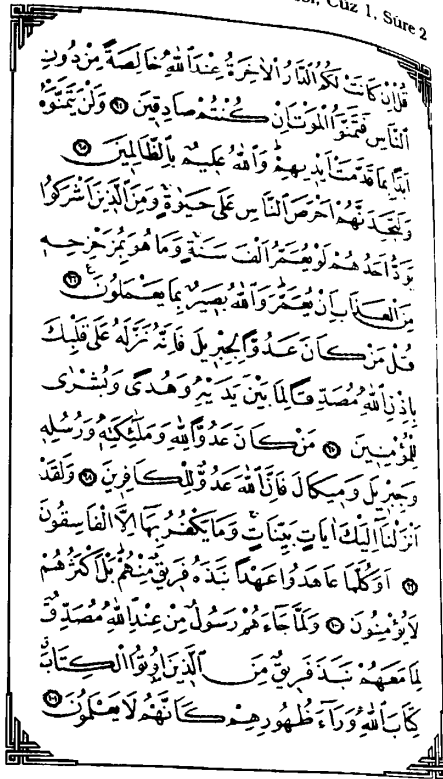 Cüz 1, Sûre 2
قُلْ اِنْ كَانَتْ لَكُمُ الدَّارُ الْاٰخِرَةُ عِنْدَ اللّٰهِ خَالِصَةً مِنْ دُونِ
النَّاسِ فَتَمَنَّوُا الْمَوْتَ اِنْ كُنْتُمْ صَادِقٖينَ ﴿٩٤﴾ وَلَنْ يَتَمَنَّوْهُ
اَبَدًا بِمَا قَدَّمَتْ اَيْدٖيهِمْ وَاللّٰهُ عَلٖيمٌ بِالظَّالِمٖينَ ﴿٩٥﴾
وَلَتَجِدَنَّهُمْ اَحْرَصَ النَّاسِ عَلٰى حَيٰوةٍ وَمِنَ الَّذٖينَ اَشْرَكُوا
يَوَدُّ اَحَدُهُمْ لَوْ يُعَمَّرُ اَلْفَ سَنَةٍ وَمَا هُوَ بِمُزَحْزِحِهٖ
مِنَ الْعَذَابِ اَنْ يُعَمَّرَ وَاللّٰهُ بَصٖيرٌ بِمَا يَعْمَلُونَ ﴿٩٦﴾
قُلْ مَنْ كَانَ عَدُوًّا لِجِبْرٖيلَ فَاِنَّهُ نَزَّلَهُ عَلٰى قَلْبِكَ
بِاِذْنِ اللّٰهِ مُصَدِّقًا لِمَا بَيْنَ يَدَيْهِ وَهُدًى وَبُشْرٰى
لِلْمُؤْمِنٖينَ ﴿٩٧﴾ مَنْ كَانَ عَدُوًّا لِلّٰهِ وَمَلٰٓئِكَتِهٖ وَرُسُلِهٖ
وَجِبْرٖيلَ وَمٖيكَالَ فَاِنَّ اللّٰهَ عَدُوٌّ لِلْكَافِرٖينَ ﴿٩٨﴾ وَلَقَدْ
اَنْزَلْنَا اِلَيْكَ اٰيَاتٍ بَيِّنَاتٍ وَمَا يَكْفُرُ بِهَا اِلَّا الْفَاسِقُونَ
﴿٩٩﴾ اَوَكُلَّمَا عَاهَدُوا عَهْدًا نَبَذَهُ فَرٖيقٌ مِنْهُمْ بَلْ اَكْثَرُهُمْ
لَا يُؤْمِنُونَ ﴿١٠٠﴾ وَلَمَّا جَاءَهُمْ رَسُولٌ مِنْ عِنْدِ اللّٰهِ مُصَدِّقٌ
لِمَا مَعَهُمْ نَبَذَ فَرٖيقٌ مِنَ الَّذٖينَ اُوتُوا الْكِتَابَ
كِتَابَ اللّٰهِ وَرَاءَ ظُهُورِهِمْ كَاَنَّهُمْ لَا يَعْلَمُونَ ﴿١٠١﴾